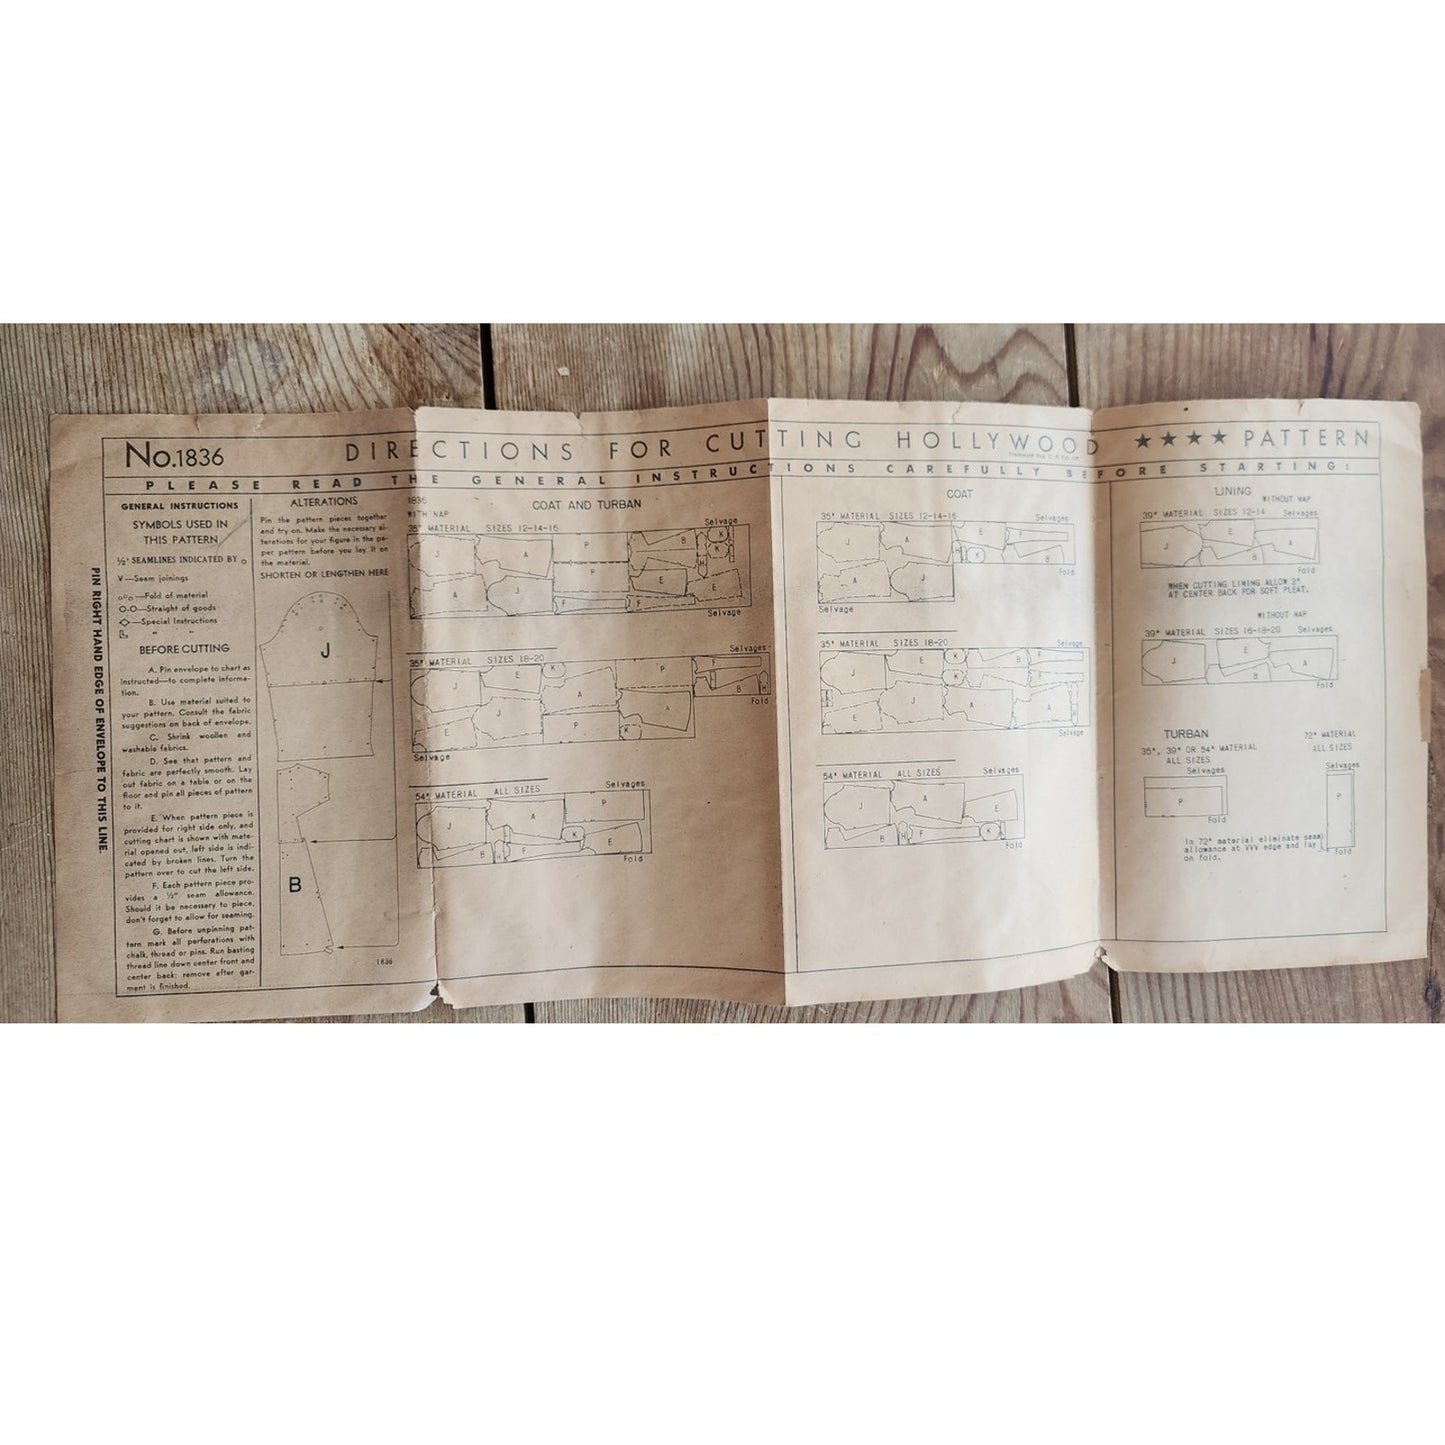 No.1836
DIRECTIONS FOR CUTTING HOLLYWOOD ★★★★ PATTERN
PLEASE READ THE GENERAL INSTRUCTIONS CAREFULLY BEFORE STARTING:
PIN RIGHT HAND EDGE OF ENVELOPE TO THIS LINE.
GENERAL INSTRUCTIONS
SYMBOLS USED IN
THIS PATTERN
½" SEAMLINES INDICATED BY o
V—Seam joinings
o°o—Fold of material
O-O—Straight of goods
◇—Special Instructions
" "
BEFORE CUTTING
A. Pin envelope to chart as
instructed—to complete informa-
tion.
B. Use material suited to
your pattern. Consult the fabric
suggestions on back of envelope.
C. Shrink woollen and
washable fabrics.
D. See that pattern and
fabric are perfectly smooth. Lay
out fabric on a table or on the
floor and pin all pieces of pattern
to it.
E. When pattern piece is
provided for right side only, and
cutting chart is shown with mate-
rial opened out, left side is indi-
cated by broken lines. Turn the
pattern over to cut the left side.
F. Each pattern piece pro-
vides a ½" seam allowance.
Should it be necessary to piece,
don't forget to allow for seaming.
G. Before unpinning pat-
tern mark all perforations with
chalk, thread or pins. Run basting
thread line down center front and
center back; remove after gar-
ment is finished.
ALTERATIONS
Pin the pattern pieces together
and try on. Make the necessary al-
terations for your figure in the pa-
per pattern before you lay it on
the material.
SHORTEN OR LENGTHEN HERE
J
B
1836
1836
WITH NAP
COAT AND TURBAN
35" MATERIAL SIZES 12-14-16
Selvage
J A P B K K H
P E E
A J F F
Selvage
35" MATERIAL SIZES 18-20
Selvages
J E K P F
A B H
E J P K A
Fold
Selvage
54" MATERIAL ALL SIZES
Selvages
J A P
K E
B H F
Fold
COAT
35" MATERIAL SIZES 12-14-16
Selvages
J A E F
H K B
Fold
A J
Selvage
35" MATERIAL SIZES 18-20
Selvage
J E K B F
K F
H E J A A H
Selvage
54" MATERIAL ALL SIZES
Selvages
J A E
B H F K
Fold
LINING
WITHOUT NAP
39" MATERIAL SIZES 12-14
Selvages
J E A
B
Fold
WHEN CUTTING LINING ALLOW 2"
AT CENTER BACK FOR SOFT PLEAT.
WITHOUT NAP
39" MATERIAL SIZES 16-18-20
Selvages
J E A
B
Fold
TURBAN
35", 39" OR 54" MATERIAL
ALL SIZES
Selvages
P
Fold
72" MATERIAL
ALL SIZES
Selvages
P
Fold
In 72" material eliminate seam
allowance at VVV edge and lay
on fold.